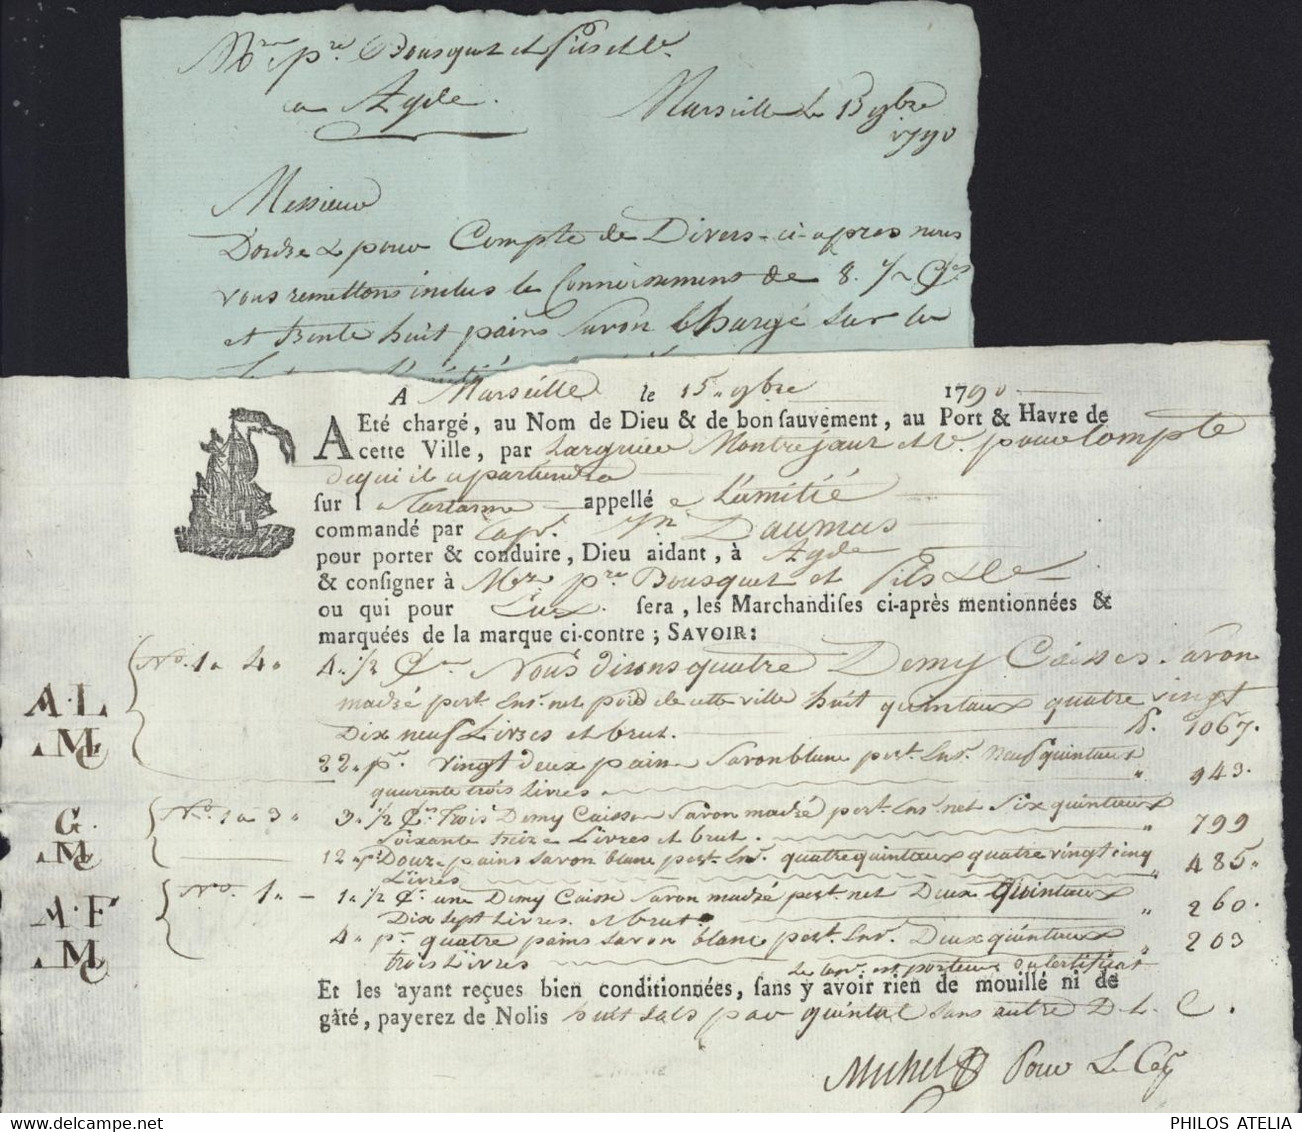 Mrs. pre. Bousquet et fils et Ce.
a Agde.
Marseille Le 15 9bre
1790
Messieurs
D'ordre & pour Compte de Divers ci-apres nous
vous remettons inclus le Connoissement de 8. 1/2 Ces
et trente huit pains savon Chargé sur la
A Marseille le 15. 9bre 1790
A Eté chargé, au Nom de Dieu & de bon sauvement, au Port & Havre de
cette Ville, par Larguier Montrejaux et Ce. pour Compte
de qui il apartiendra
sur l a Tartanne appellé e L'amitié
commandé par Cape. Daumas
pour porter & conduire, Dieu aidant, à Agde
& consigner à Mrs. pre. Bousquet et fils & Ce
ou qui pour Eux. sera, les Marchandises ci-après mentionnées &
marquées de la marque ci-contre; SAVOIR:
A.L MC
No. 1 a 4. 4. 1/2 Ces Nous disons quatre Demy Caisses savon
madré pert. Enle. net poid de cette ville huit quintaux quatre vingt
Dix neuf Livres et brut. 1067.
22. ps. vingt deux pains savon blanc pert. Enle. Neuf quintaux
quarente trois Livres 943.
G. MC
No. 1 a 3. 3. 1/2 Ces Trois Demy Caisses savon madré pert. Enle. net Six quintaux
soixante treize Livres et brut. 799
12. ps. Douze pains savon blanc pert. Enle. quatre quintaux quatre vingt cinq
Livres 485.
A.F MC
No. 1. 1. 1/2 Ce. une Demy Caisse savon madré pert. net Deux quintaux
Dix sept Livres et brut. 260.
4. ps. quatre pains savon blanc pert. Enle. Deux quintaux
trois Livres 203
Le Cape. est porteur Du Certificat
Et les ayant reçues bien conditionnées, sans y avoir rien de mouillé ni de
gâté, payerez de Nolis huit sols par quintal sans autre D. L. C.
Michel Pour Le Cap
PHILOS ATELIA